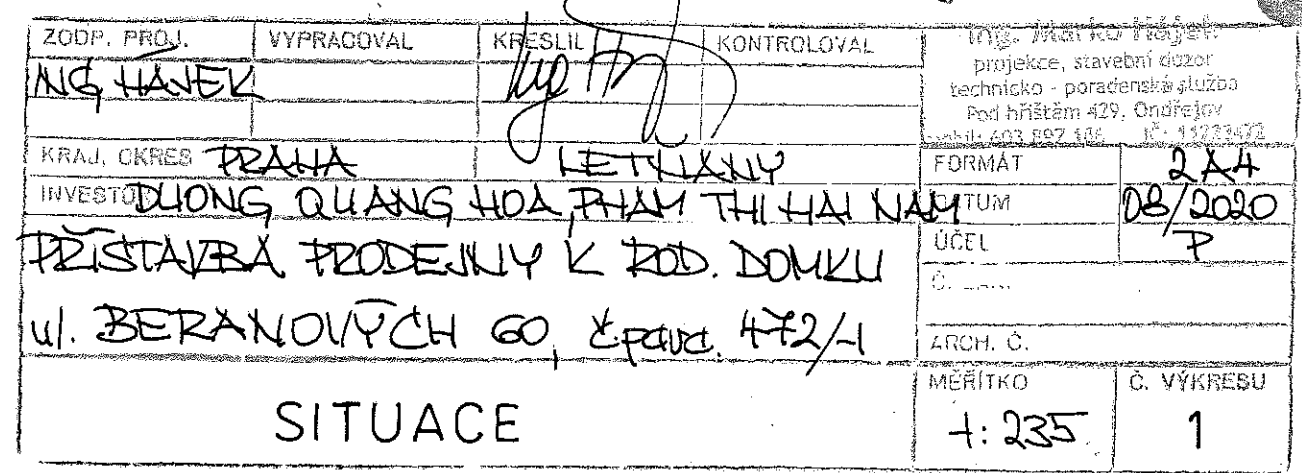 ZODP. PROJ. VYPRACOVAL KRESLIL KONTROLOVAL
ING. HÁJEK
projekce, stavební dozor
technicko - poradenská služba
Pod hřištěm 429, Ondřejov
KRAJ, OKRES PRAHA LETŇANY
FORMÁT 2A4
DUONG QUANG HOA, PHAM THI HAI NAM
08/2020
PŘÍSTAVBA PRODEJNY K ROD. DOMKU
ÚČEL P
ul. BERANOVÝCH 60, č.parc. 472/1
ARCH. Č.
SITUACE
MĚŘÍTKO 1:235
Č. VÝKRESU 1